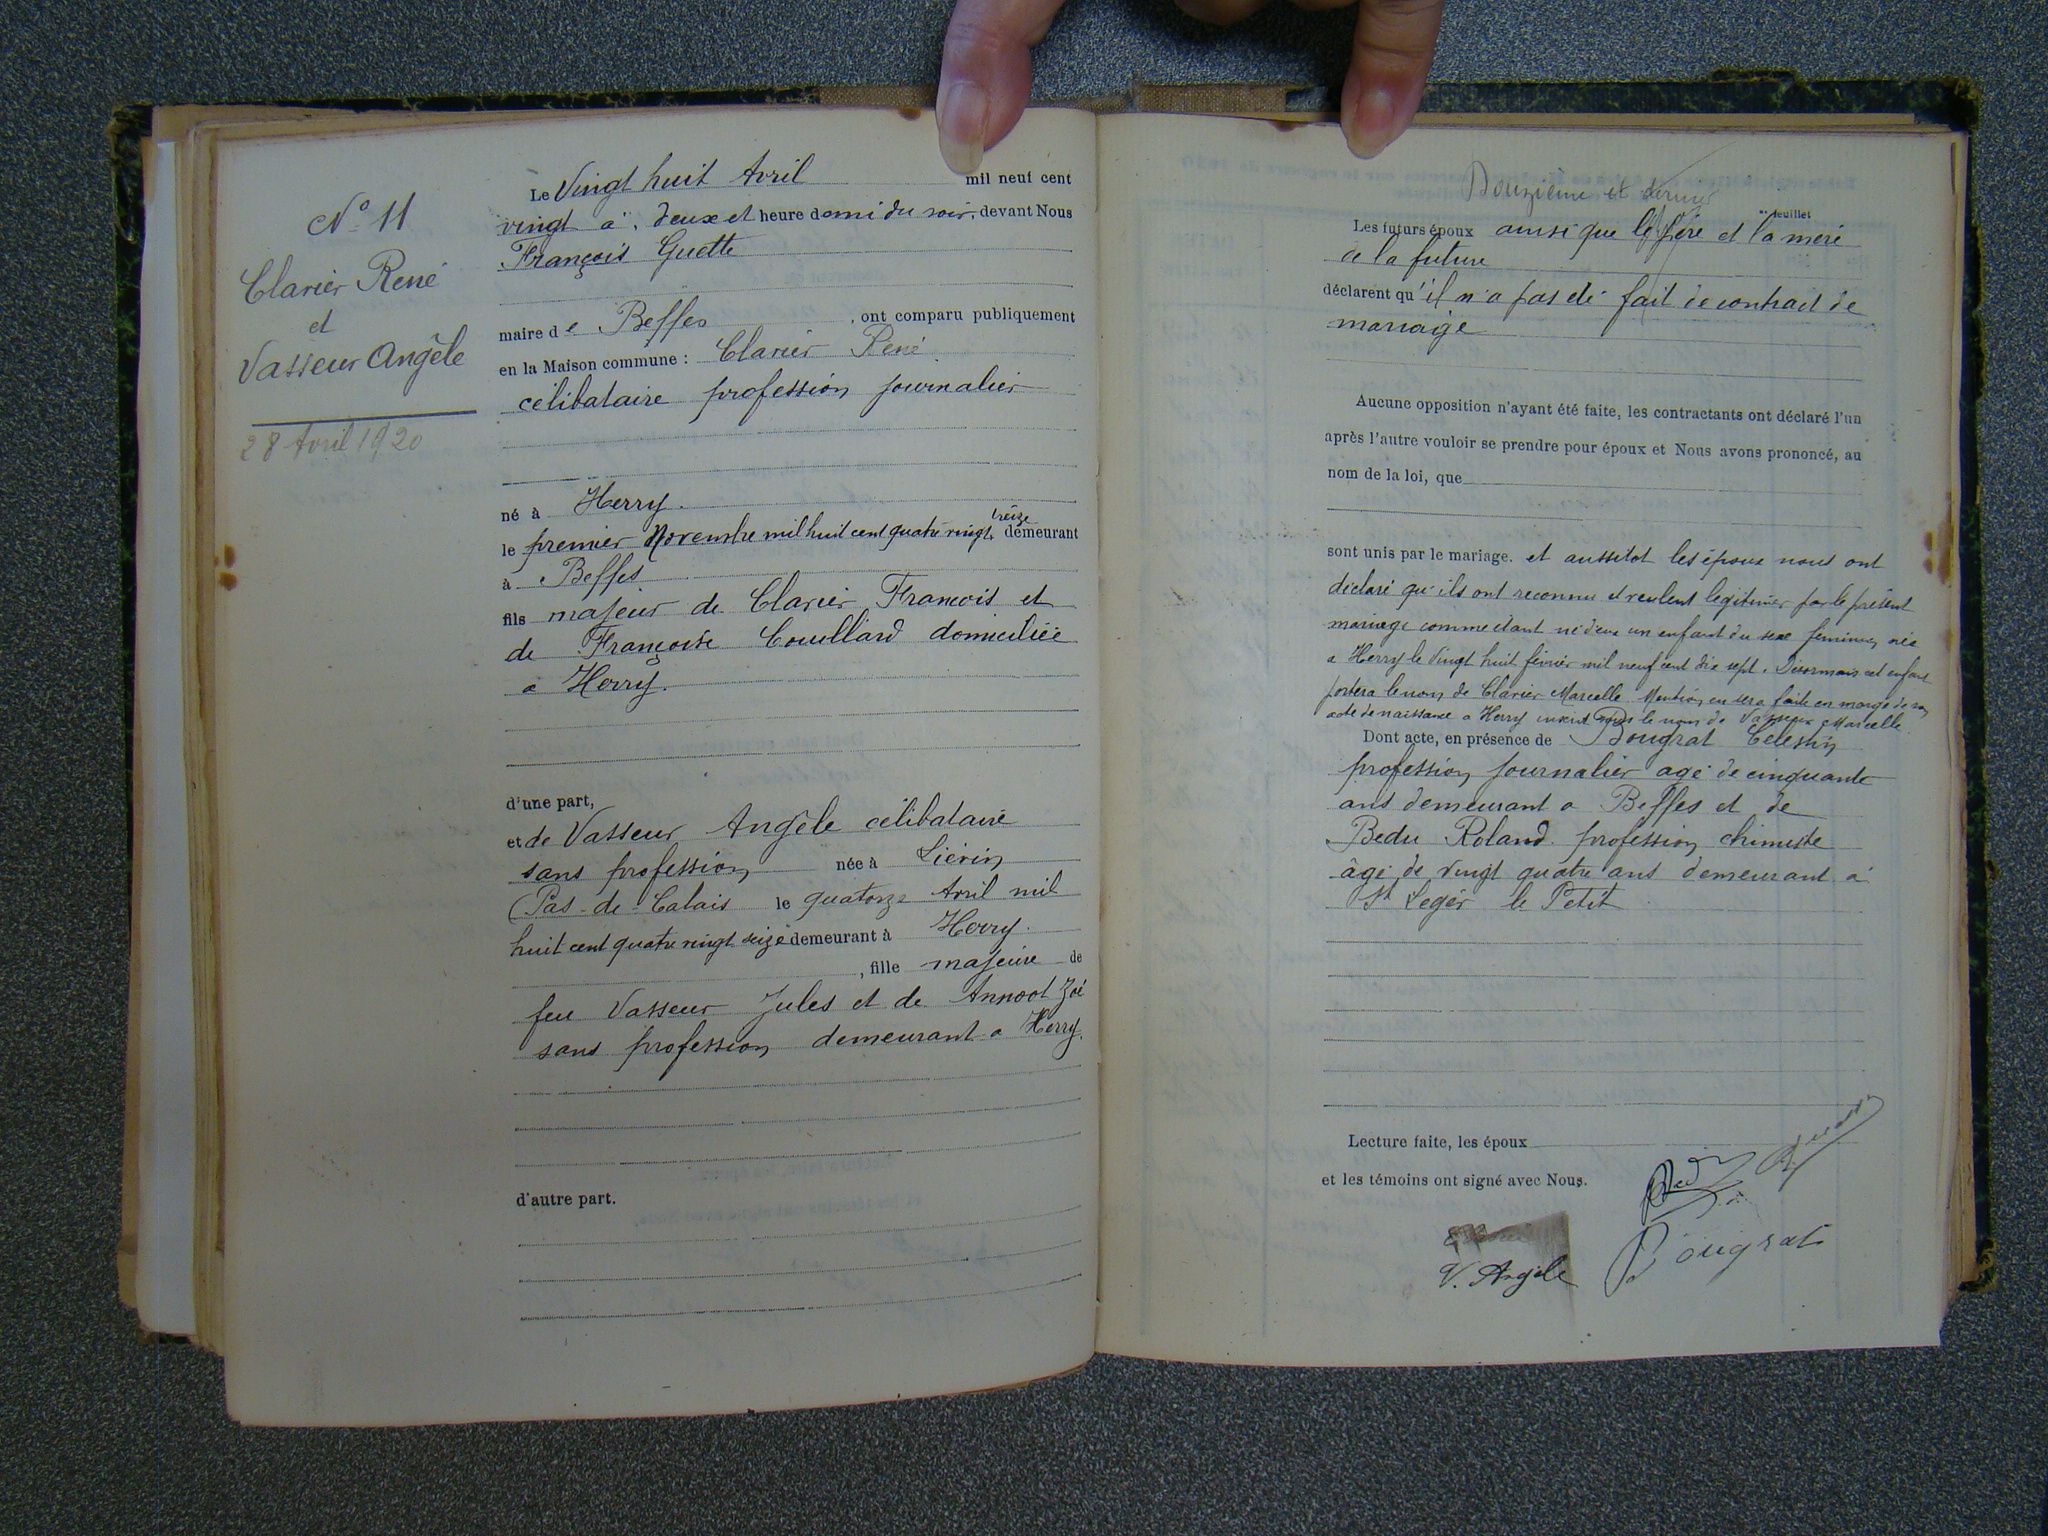 N° 11
Clavier René
et
Vasseur Angèle
28 Avril 1920
Le Vingt huit Avril mil neuf cent
vingt à deux et heure demi du soir, devant Nous
François Guette
maire de Beffes, ont comparu publiquement
en la Maison commune : Clavier René
célibataire profession journalier
né à Herry.
le premier Novembre mil huit cent quatre vingt treize demeurant
à Beffes
fils majeur de Clavier François et
de Françoise Couillard domiciliée
a Herry.
d'une part,
et de Vasseur Angèle célibataire
sans profession née à Liévin
(Pas-de-Calais le quatorze Avril mil
huit cent quatre vingt seize demeurant à Herry.
, fille majeure de
feu Vasseur Jules et de Annoot Zoé
sans profession demeurant a Herry.
d'autre part.
Douzième et dernier
feuillet
Les futurs époux ainsi que le père et la mère
de la future
déclarent qu'il n'a pas été fait de contrat de
mariage
Aucune opposition n'ayant été faite, les contractants ont déclaré l'un
après l'autre vouloir se prendre pour époux et Nous avons prononcé, au
nom de la loi, que
sont unis par le mariage. et aussitot les époux nous ont
déclaré qu'ils ont reconnu et veulent legitimer par le présent
mariage comme étant né d'eux un enfant du sexe feminin née
a Herry le Vingt huit février mil neuf cent dix sept. Désormais cet enfant
portera le nom de Clavier Marcelle Mention en sera faite en marge de son
acte de naissance a Herry sous le nom de Vasseur Marcelle.
Dont acte, en présence de Bougrat Célestin
profession journalier agé de cinquante
ans demeurant a Beffes et de
Bedu Roland profession chimiste
âgé de vingt quatre ans demeurant à
St Leger le Petit
Lecture faite, les époux
et les témoins ont signé avec Nous.
V. Angèle
Bougrat